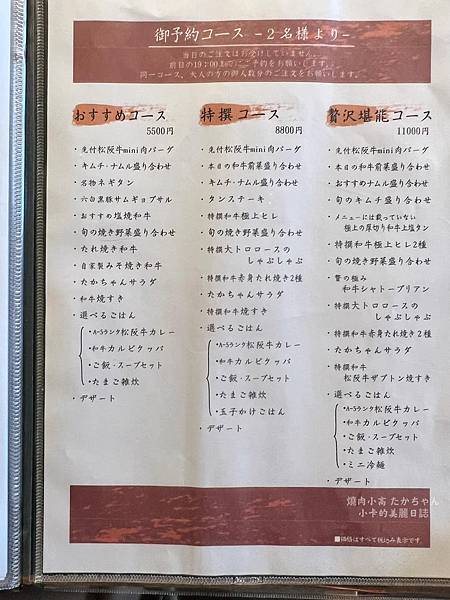 御予約コース －２名様より－
当日のご注文はお受けしていません。
前日の19:00までにご予約をお願いします。
同一コース、大人の方の御人数分のご注文をお願いします。
おすすめコース
5500円
・先付松阪牛mini肉バーグ
・キムチ・ナムル盛り合わせ
・名物ネギタン
・六白黒豚サムギョプサル
・おすすめ塩焼和牛
・旬の焼き野菜盛り合わせ
・たれ焼き和牛
・自家製みそ焼き和牛
・たかちゃんサラダ
・和牛焼すき
・選べるごはん
・A-5ランク松阪牛カレー
・和牛カルビクッパ
・ご飯・スープセット
・たまご雑炊
・デザート
特撰コース
8800円
・先付松阪牛mini肉バーグ
・本日の和牛前菜盛り合わせ
・キムチ・ナムル盛り合わせ
・タンステーキ
・特撰和牛極上ヒレ
・旬の焼き野菜盛り合わせ
・特撰大トロロースの
しゃぶしゃぶ
・特撰和牛赤身たれ焼き2種
・たかちゃんサラダ
・特撰和牛焼すき
・選べるごはん
・A-5ランク松阪牛カレー
・和牛カルビクッパ
・ご飯・スープセット
・たまご雑炊
・玉子かけごはん
・デザート
贅沢堪能コース
11000円
・先付松阪牛mini肉バーグ
・本日の和牛前菜盛り合わせ
・おすすめナムル盛り合わせ
・旬のキムチ盛り合わせ
・メニューには載っていない
極上の厚切り和牛上塩タン
・特撰和牛極上ヒレ2種
・旬の焼き野菜盛り合わせ
・贅の極み
和牛シャトーブリアン
・特撰大トロロースの
しゃぶしゃぶ
・特撰和牛赤身たれ焼き2種
・たかちゃんサラダ
・特撰和牛
松阪牛ザブトン焼すき
・選べるごはん
・A-5ランク松阪牛カレー
・和牛カルビクッパ
・ご飯・スープセット
・たまご雑炊
・ミニ冷麺
・デザート
燒肉小高 たかちゃん
小卡的美麗日誌
■価格はすべて税込み表示です。